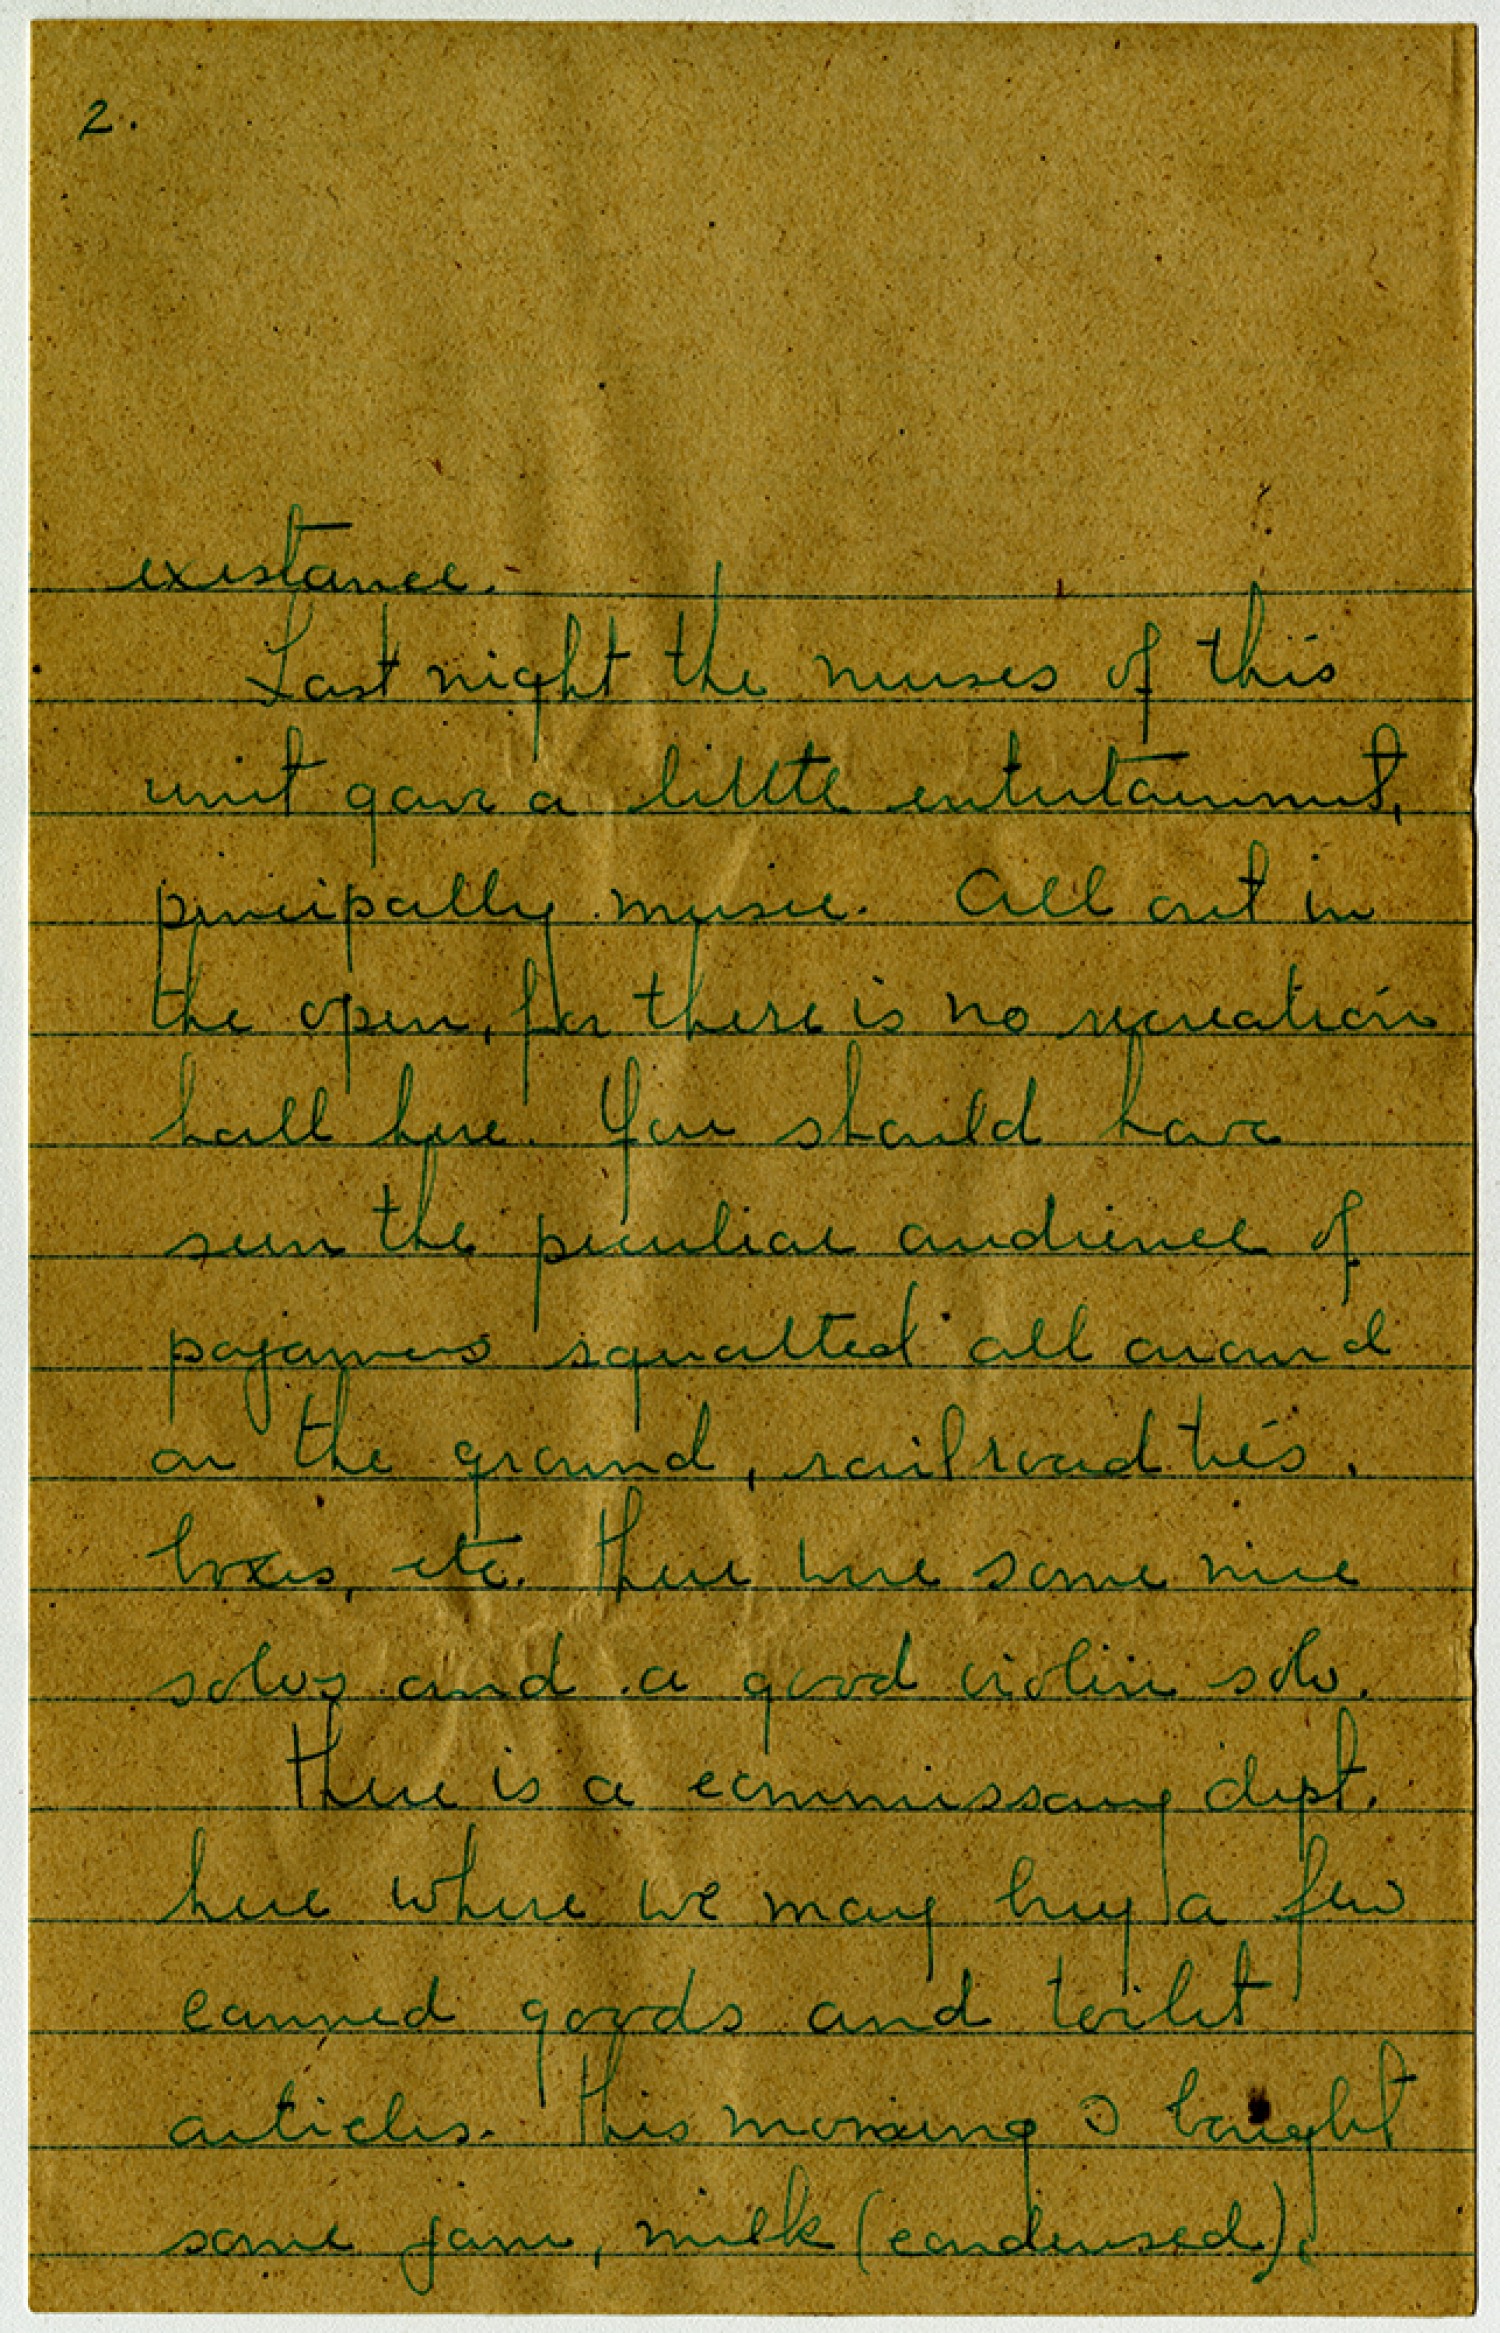 2.
existance.
Last night the nurses of this
unit gave a little entertainment,
principally music. All out in
the open, for there is no recreation
hall here. You should have
seen the peculiar audience of
pajamers squatted all around
on the ground, railroad ties,
boxes, etc. There were some nice
solos and a good violin solo.
There is a commissary dept.
here where we may buy a few
canned goods and toilet
articles. This morning I bought
some jam, milk (condensed),